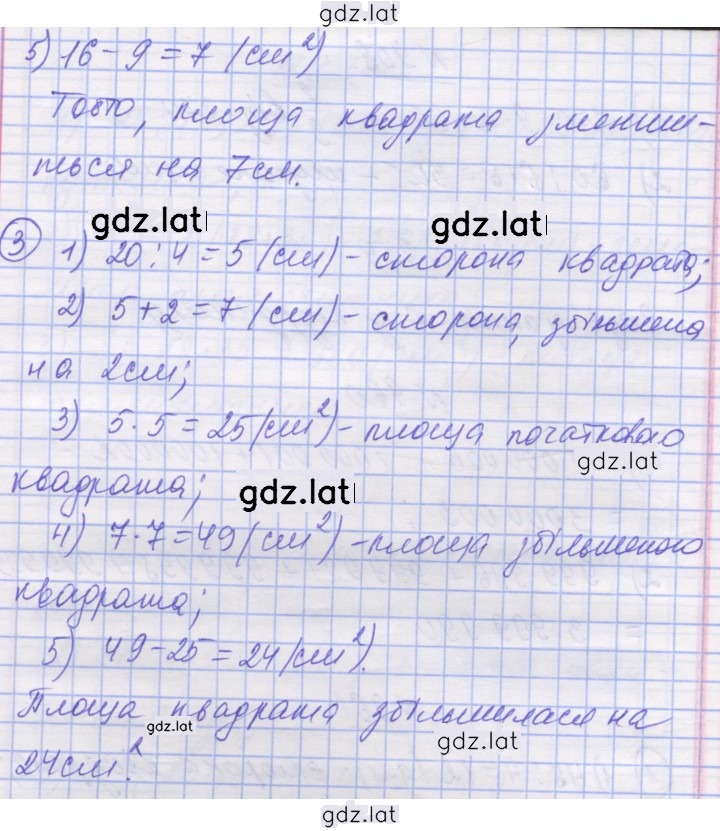 gdz.lat
5) 16 - 9 = 7 (см²)
Тобто, площа квадрата зменши-
ться на 7см.
gdz.lat gdz.lat
3 1) 20 : 4 = 5 (см) - сторона квадрата;
2) 5 + 2 = 7 (см) - сторона, збільшена
на 2см;
3) 5 · 5 = 25 (см²) - площа початкового
gdz.lat
квадрата; gdz.lat
4) 7 · 7 = 49 (см²) - площа збільшеного
квадрата;
5) 49 - 25 = 24 (см²).
Площа квадрата збільшилася на
gdz.lat gdz.lat
24см².
gdz.lat